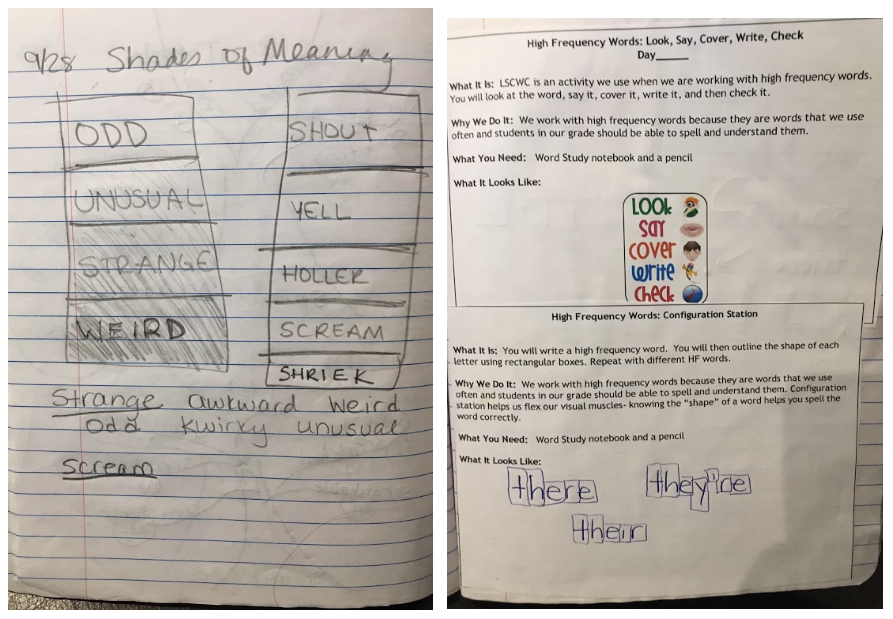 9/28 Shades of Meaning
ODD
UNUSUAL
STRANGE
WEIRD
SHOUT
YELL
HOLLER
SCREAM
SHRIEK
Strange awkward Weird
Odd Kwirky unusual
Scream
High Frequency Words: Look, Say, Cover, Write, Check
Day_____
What It Is: LSCWC is an activity we use when we are working with high frequency words.
You will look at the word, say it, cover it, write it, and then check it.
Why We Do It: We work with high frequency words because they are words that we use
often and students in our grade should be able to spell and understand them.
What You Need: Word Study notebook and a pencil
What It Looks Like:
LOOK
Say
COVER
Write
Check
High Frequency Words: Configuration Station
What It Is: You will write a high frequency word. You will then outline the shape of each
letter using rectangular boxes. Repeat with different HF words.
Why We Do It: We work with high frequency words because they are words that we use
often and students in our grade should be able to spell and understand them. Configuration
station helps us flex our visual muscles- knowing the "shape" of a word helps you spell the
word correctly.
What You Need: Word Study notebook and a pencil
What It Looks Like:
there they're
their